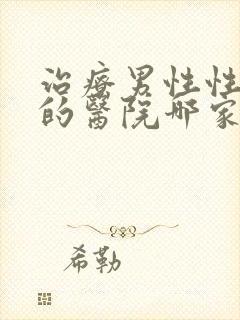 治療男性性
的醫院哪家
希勒